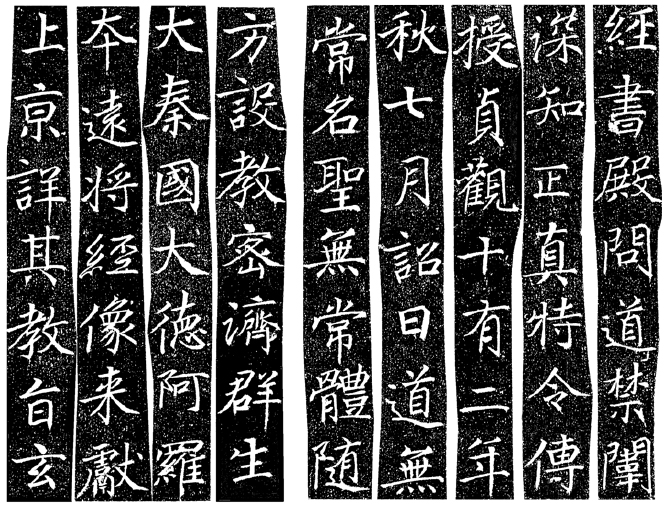 經書殿問道禁闈
深知正真特令傳
授貞觀十有二年
秋七月詔曰道無
常名聖無常體随
方設教密濟群生
大秦國大德阿羅
夲遠将經像来獻
上京詳其教旨玄